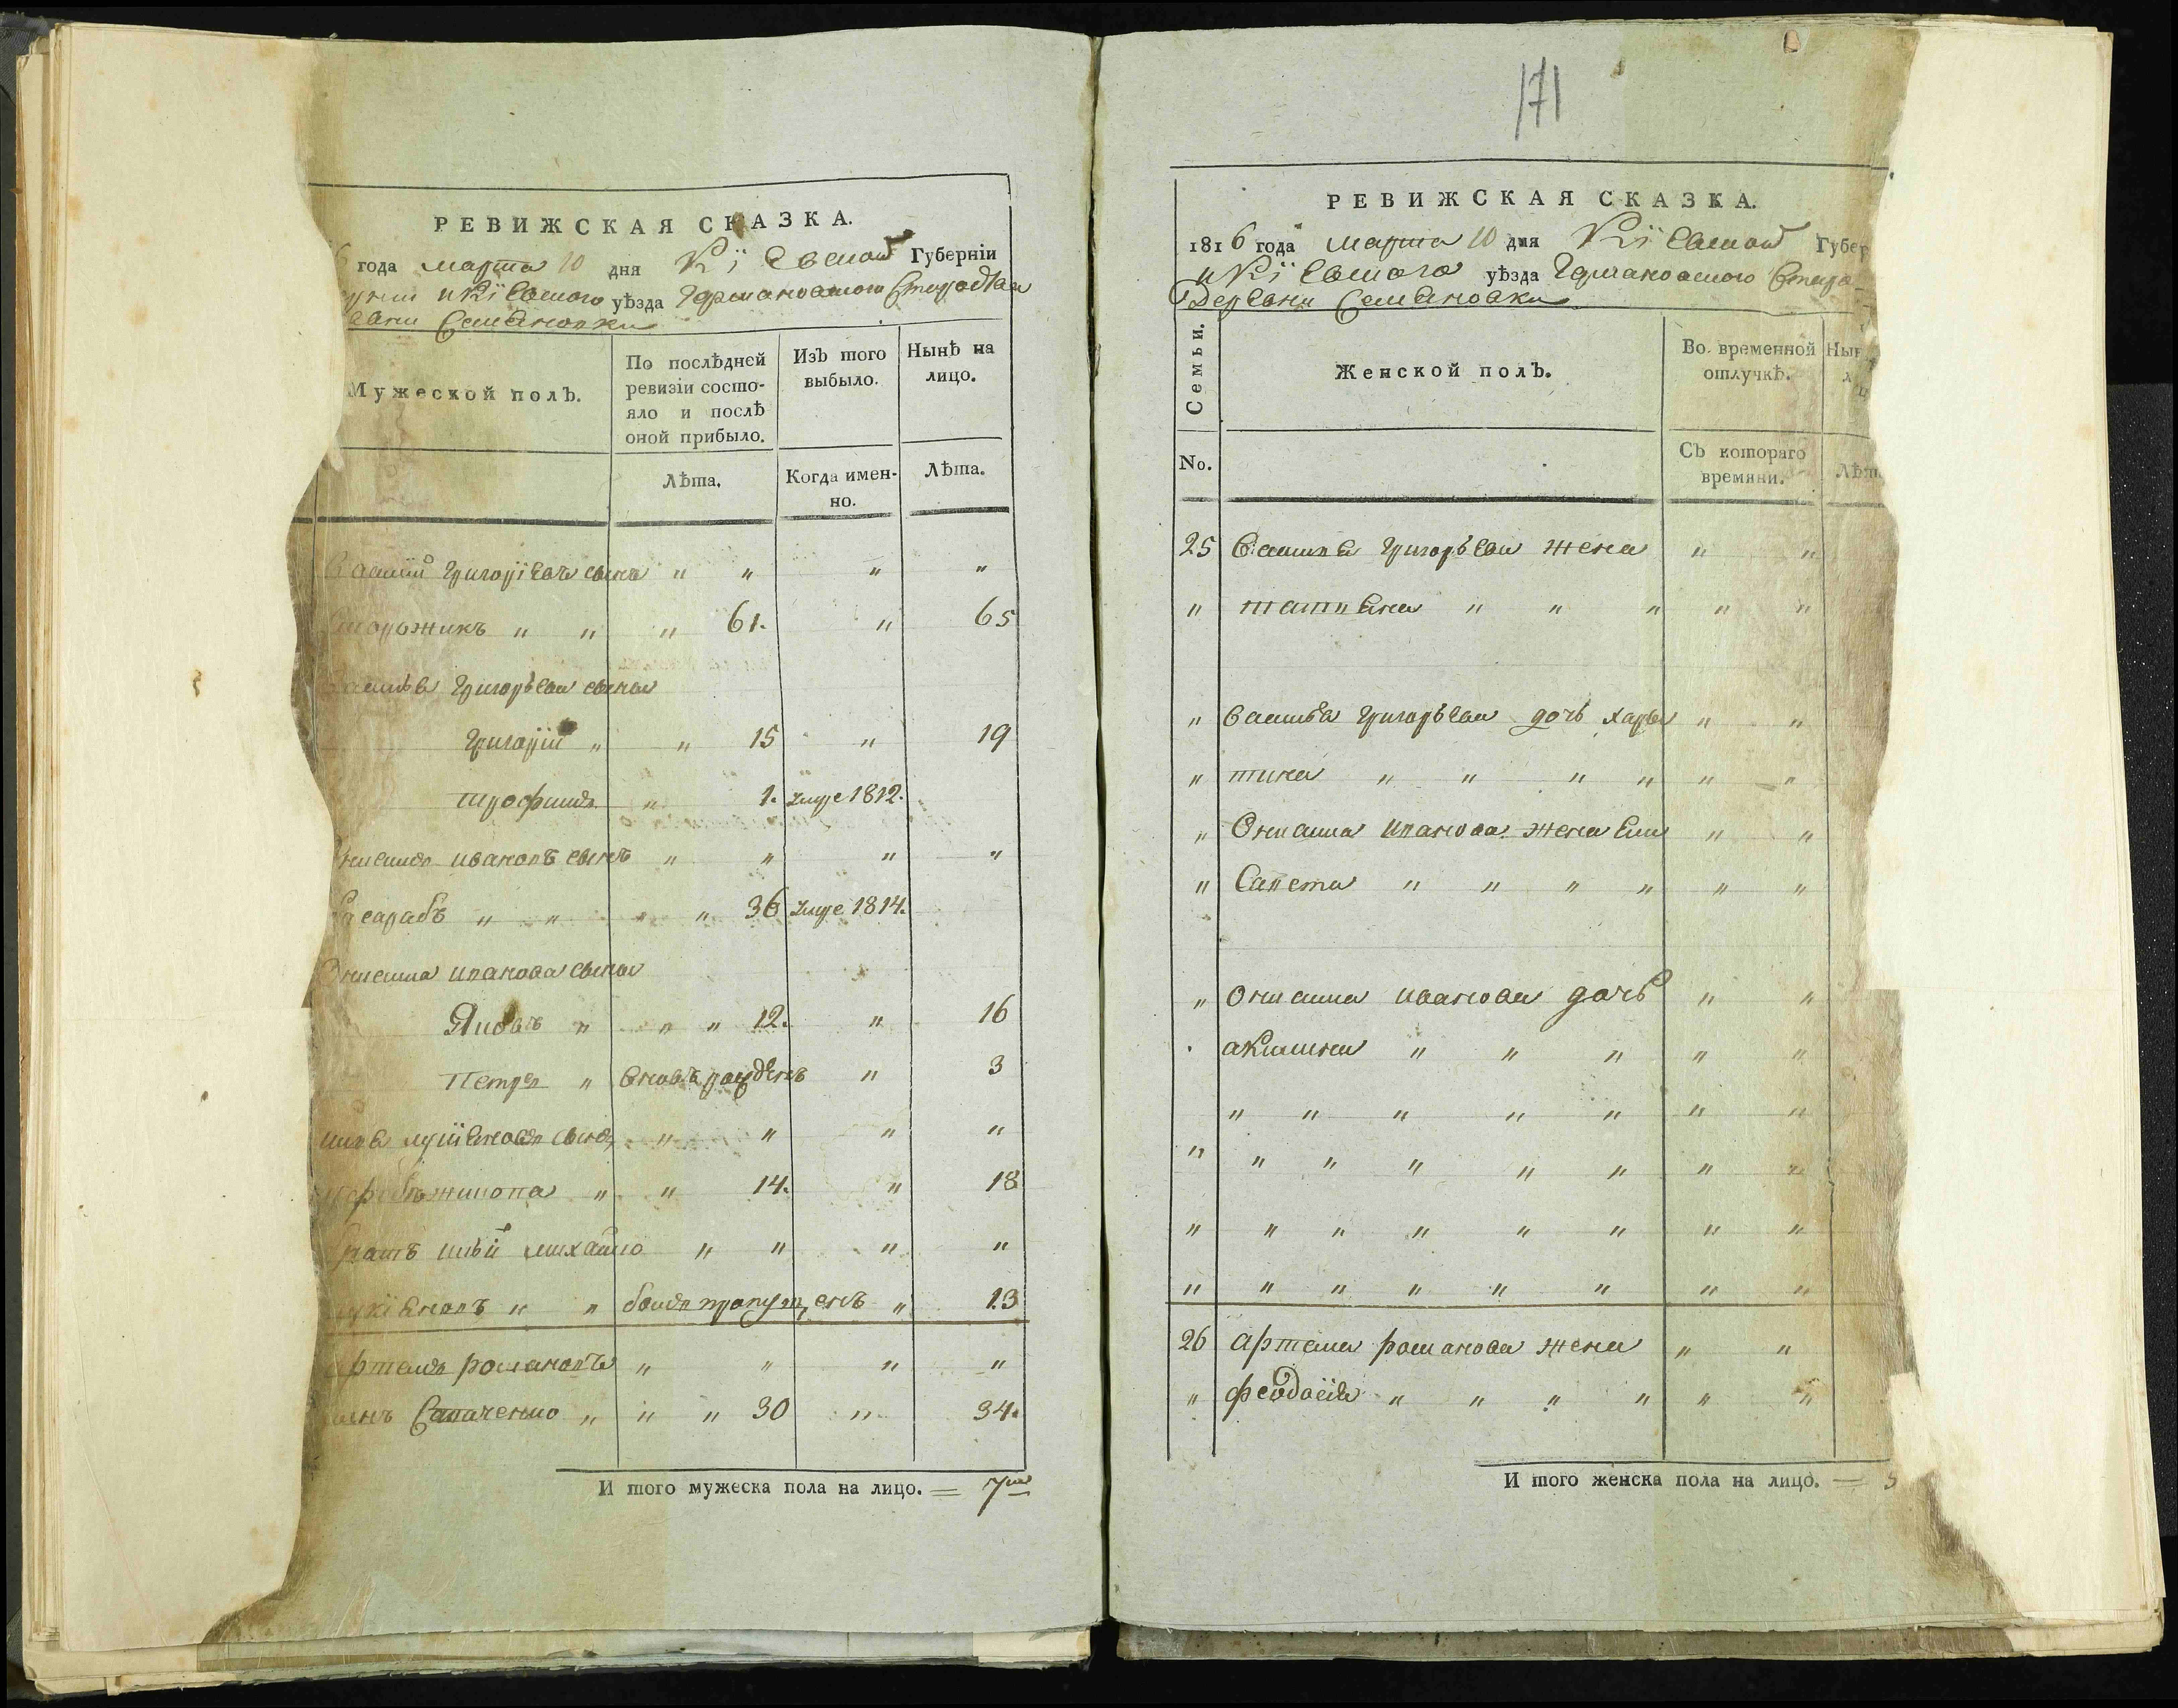 РЕВИЖСКАЯ СКАЗКА.
6 года марта 10 дня Кіевской Губерніи
и Кіевского уѣзда Германовского Староства
Семеновки
Мужеской полъ.
По послѣдней ревизіи состояло и послѣ оной прибыло.
Изъ того выбыло.
Нынѣ на лицо.
Лѣта.
Когда именно.
Лѣта.
Василій Григоріевъ сынъ " " " "
Сторожикъ " " " 61. " 65
Василья Григорьева сыновья
Григорій " " 15 " 19
Трофимъ " 1. умре 1812.
Онисимъ Ивановъ сынъ " " " "
Басарабъ " " " " 36 умре 1814.
Онисима Иванова сыновья
Яковъ " " " 12. " 16
Петръ " вновь рожденъ " 3
" " " "
" " 14. " 18
братъ Михайло " " " "
" " былъ пропущенъ " 13
Артемъ Романовъ " " " "
" " " 30 " 34.
И того мужеска пола на лицо. = 7
171
РЕВИЖСКАЯ СКАЗКА.
1816 года марта 10 дня Кіевской Губер
и Кіевского уѣзда Германовского Старо-
Деревни Семеновки
Семьи.
No.
Женской полъ.
Во временной отлучкѣ.
Съ котораго времяни.
25 Василья Григорьева жена " "
" Татьяна " " " " "
" Василья Григорьева дочь Хары " "
" тина " " " " " "
" Онисима Иванова жена Ели " "
" савета " " " " " "
" Онисима Иванова дочь " "
Акилина " " " " "
" " " " " " "
" " " " " " " "
" " " " " " " "
" " " " " " " "
26 Артема Романова жена " "
" Феодосія " " " " " "
И того женска пола на лицо. =